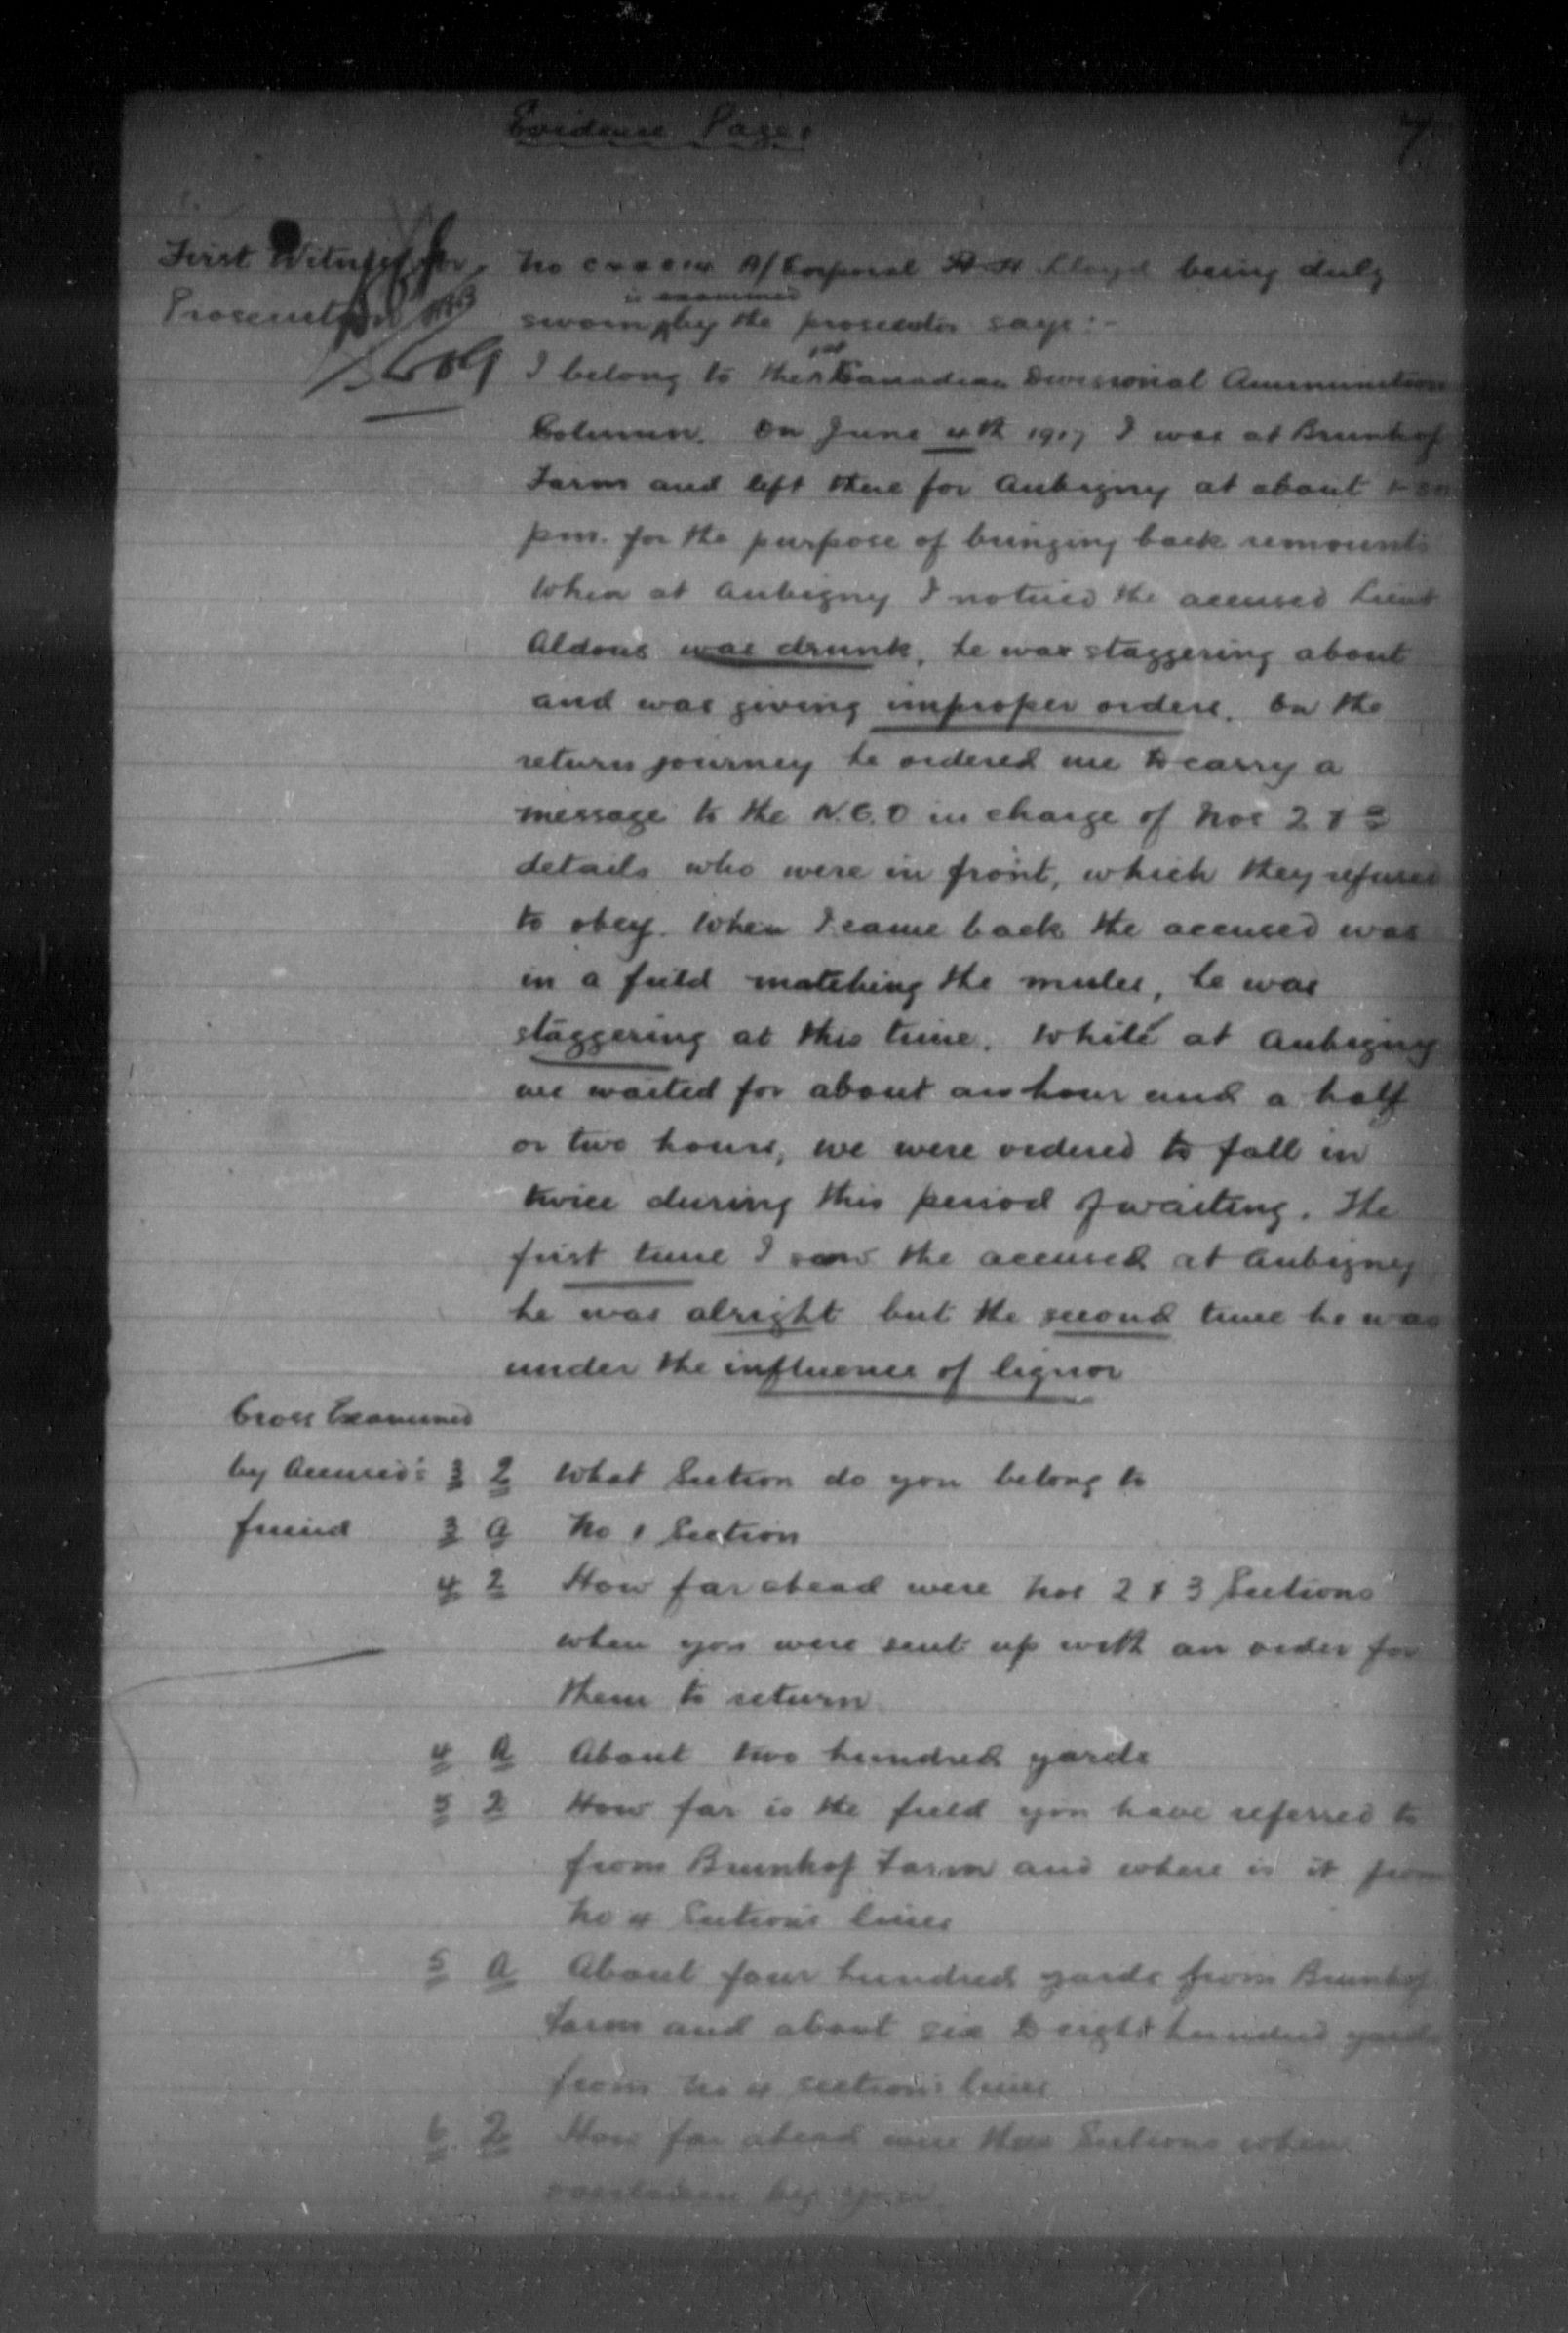 Evidence Page 1
7
First Witness for
Prosecution
A/Corporal Lloyd being duly
is examined
sworn by the prosecutor says:-
I belong to the 1st Canadian Divisional Ammunition
Column. On June 4th 1917 I was at Brunhof
Farm and left there for Aubigny at about
pm. for the purpose of bringing back remounts
When at Aubigny I noticed the accused Lieut
Aldous was drunk, he was staggering about
and was giving improper orders. On the
return journey he ordered me to carry a
message to the N.C.O in charge of Nos 2 & 3
details who were in front, which they refused
to obey. When I came back the accused was
in a field matching the mules, he was
staggering at this time. While at Aubigny
we waited for about an hour and a half
or two hours, we were ordered to fall in
twice during this period of waiting. The
first time I saw the accused at Aubigny
he was alright but the second time he was
under the influence of liquor
Cross Examined
by Accused's 3 Q What Section do you belong to
friend 3 A No 1 Section
4 Q How far ahead were Nos 2 & 3 Sections
when you were sent up with an order for
them to return
4 A About two hundred yards
5 Q How far is the field you have referred to
from Brunhof Farm and where is it from
No 4 Sections lines
5 A About four hundred yards from Brunhof
Farm and about six to eight hundred yards
from No 4 sections lines
6 Q How far ahead were these Sections when
overtaken by you